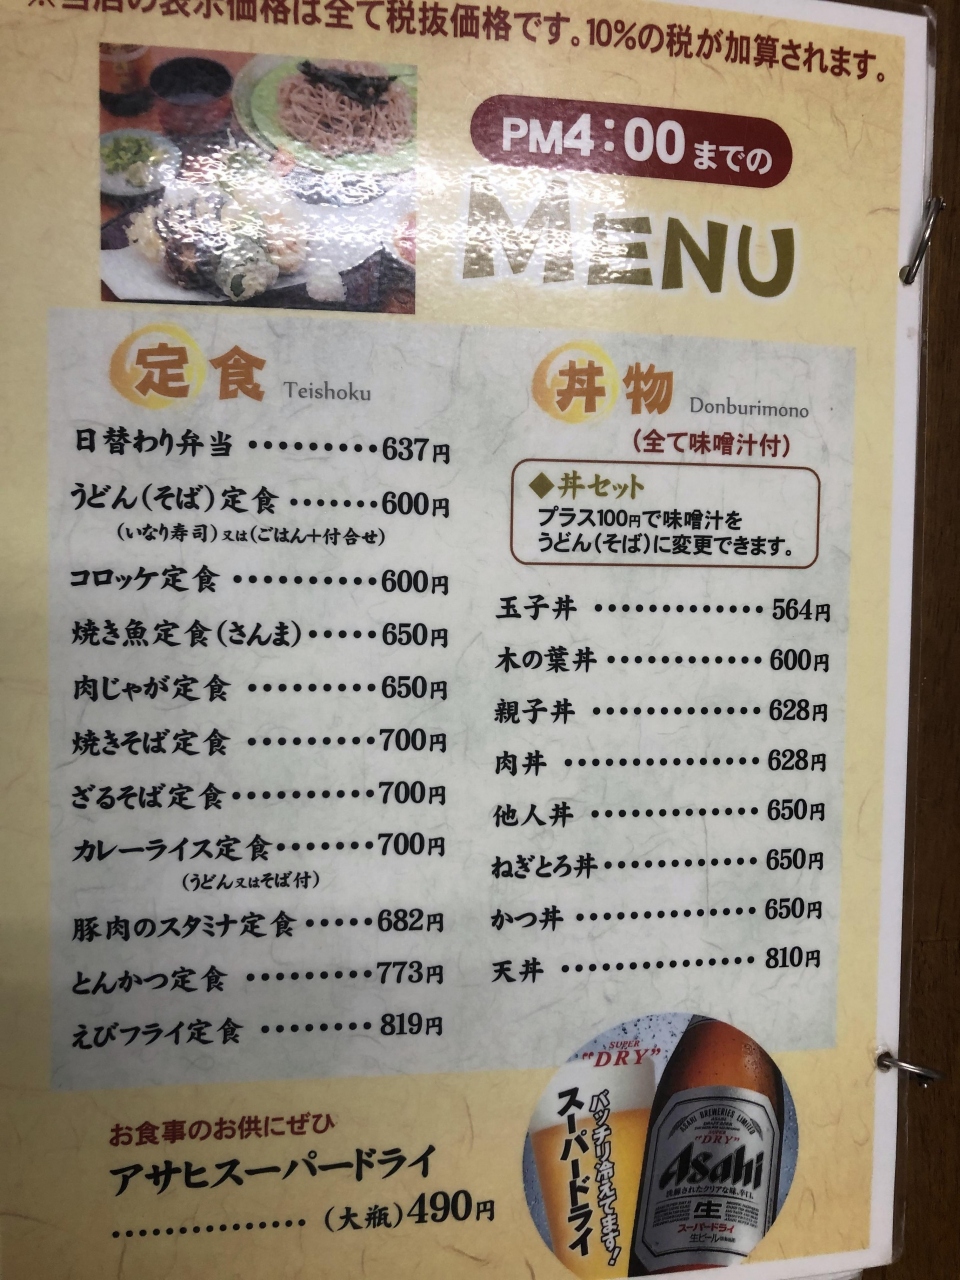 ※当店の表示価格は全て税抜価格です。10%の税が加算されます。
PM4:00までの
MENU
定食 Teishoku
日替わり弁当 ･････････637円
うどん(そば)定食 ･･･････600円
(いなり寿司)又は(ごはん+付合せ)
コロッケ定食 ･･････････600円
焼き魚定食(さんま)･････650円
肉じゃが定食 ･････････650円
焼きそば定食 ･････････700円
ざるそば定食･･････････700円
カレーライス定食･･･････700円
(うどん又はそば付)
豚肉のスタミナ定食 ･････682円
とんかつ定食 ･････････773円
えびフライ定食 ････････819円
丼物 Donburimono
(全て味噌汁付)
◆丼セット
プラス100円で味噌汁を
うどん(そば)に変更できます。
玉子丼 ･････････････ 564円
木の葉丼････････････ 600円
親子丼 ･････････････ 628円
肉丼 ･･･････････････ 628円
他人丼 ･････････････ 650円
ねぎとろ丼････････････ 650円
かつ丼 ･･････････････ 650円
天丼 ･･･････････････ 810円
お食事のお供にぜひ
アサヒスーパードライ
･･･････････････ (大瓶)490円
SUPER
"DRY"
バッチリ冷えてます!
スーパードライ
ASAHI BREWERIES LIMITED
SUPER
"DRY"
Asahi
洗練されたクリアな味、辛口。
生
スーパードライ
生ビール